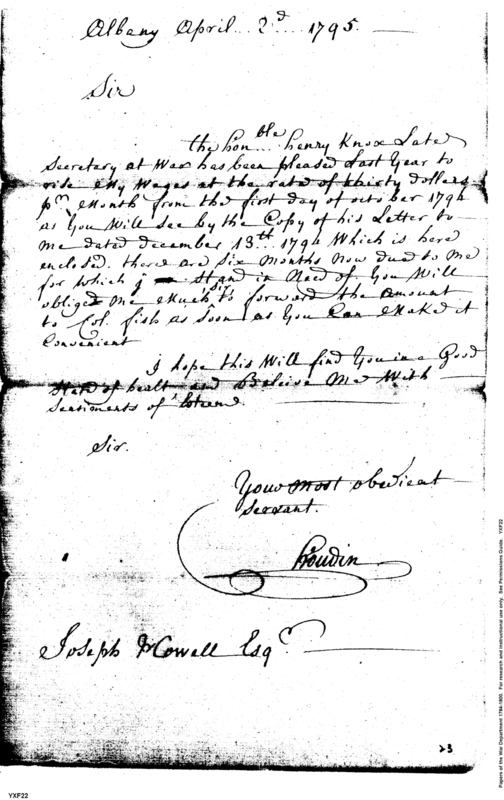 Albany April 2d 1795.
Sir
the honble henry Knox Late
Secretary at War has been pleased Last Year to
rise My Wages at the rate of thirty dollars
pr Month from the first day of october 1794
as You Will See by the Copy of his Letter to
Me dated december 13th 1794 Which is here
enclosed. there are Six Months Now due to Me
for which j Stand in Need of You Will
oblige Me Much to forward the amount
to Col. fish as Soon as You Can Make it
Convenient
j hope this Will find You in a Good
State of healt and Beleive Me With
Sentiments of Esteem
Sir.
Your most obedient
Servant.
Joseph Howell Esqr
23
YXF22
Papers of the War Department 1784-1800. For research and instructional use only. See Permissions Guide. YXF22